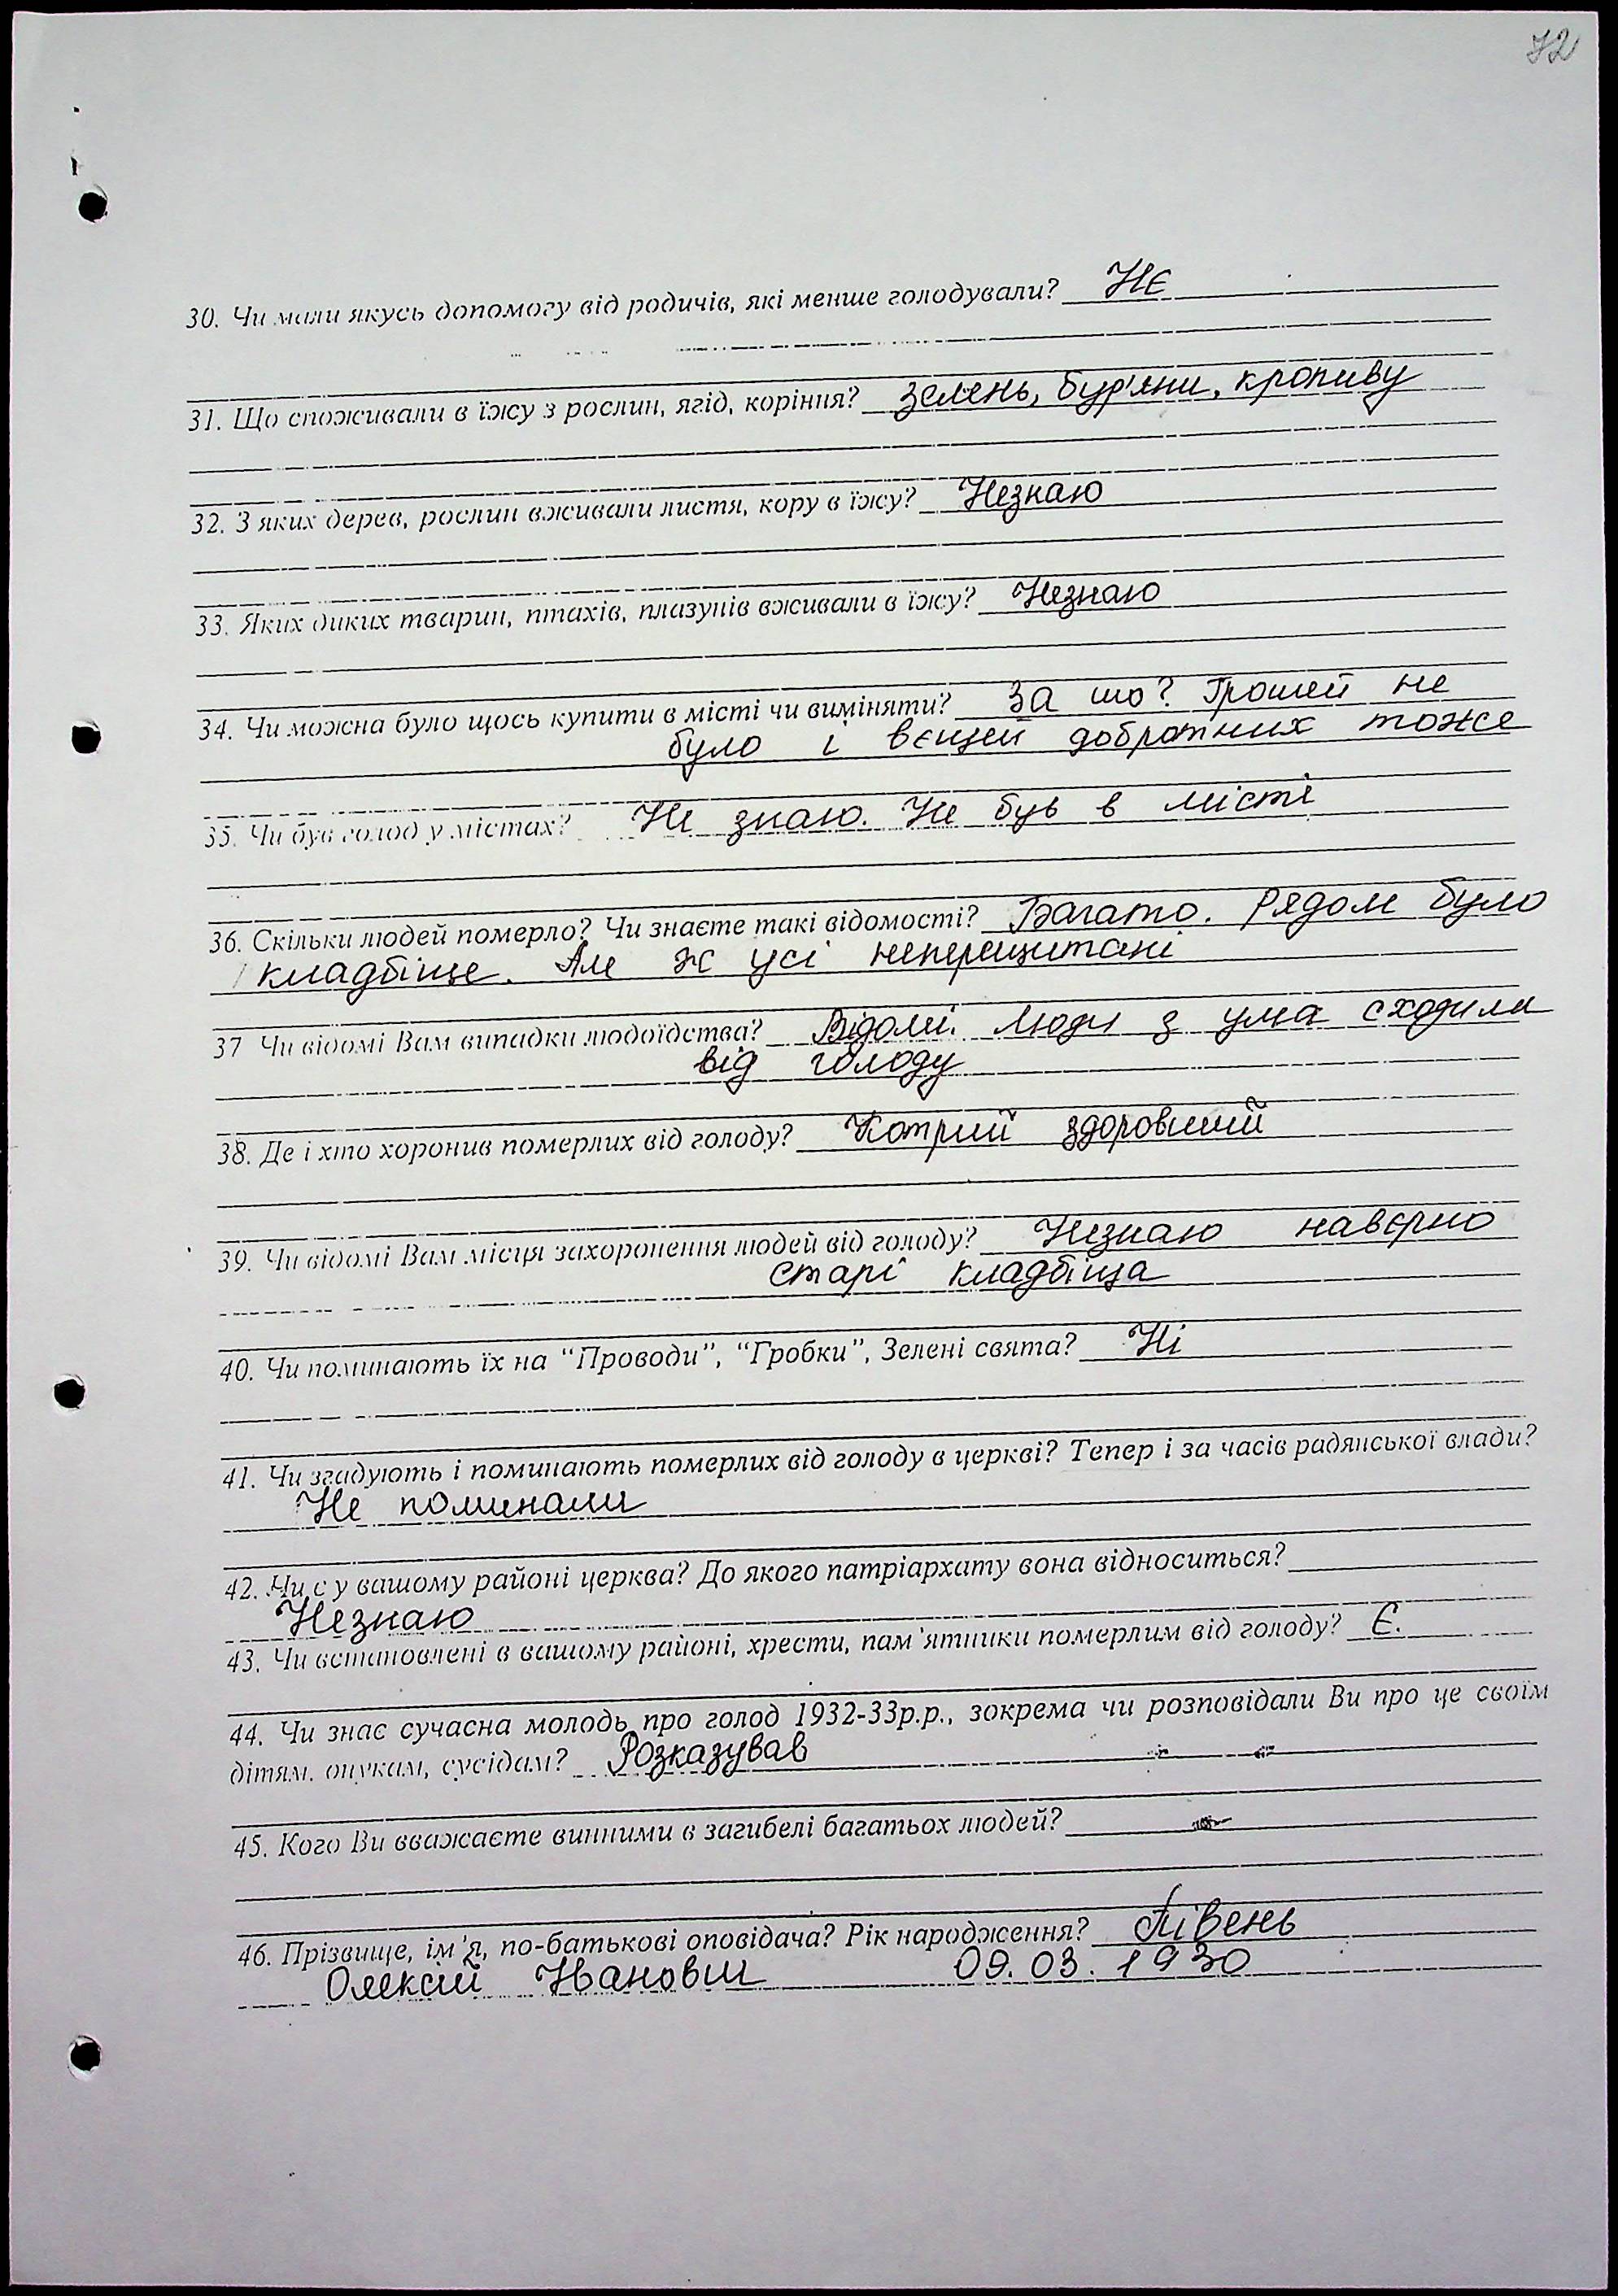 72
30. Чи мали якусь допомогу від родичів, які менше голодували? НЄ
31. Що споживали в їжу з рослин, ягід, коріння? зелень, бур'яни, кропиву
32. З яких дерев, рослин вживали листя, кору в їжу? Незнаю
33. Яких диких тварин, птахів, плазунів вживали в їжу? Незнаю
34. Чи можна було щось купити в місті чи виміняти? За шо? Грошей не
було і вєщей добротних тоже
35. Чи був голод у містах? Не знаю. Не був в місті
36. Скільки людей померло? Чи знаєте такі відомості? Багато. Рядом було
кладбіще. Але ж усі неперещитані
37 Чи відомі Вам випадки людоїдства? Відомі. Люди з ума сходили
від голоду
38. Де і хто хоронив померлих від голоду? Котрий здоровший
39. Чи відомі Вам місця захоронення людей від голоду? Незнаю навєрно
старі кладбіща
40. Чи поминають їх на “Проводи”, “Гробки”, Зелені свята? Ні
41. Чи згадують і поминають померлих від голоду в церкві? Тепер і за часів радянської влади?
Не поминали
42. Чи є у вашому районі церква? До якого патріархату вона відноситься?
Незнаю
43. Чи встановлені в вашому районі, хрести, пам'ятники померлим від голоду? Є.
44. Чи знає сучасна молодь про голод 1932-33р.р., зокрема чи розповідали Ви про це своїм
дітям, онукам, сусідам? Розказував
45. Кого Ви вважаєте винними в загибелі багатьох людей?
46. Прізвище, ім'я, по-батькові оповідача? Рік народження? Півень
Олексій Іванович 09.03.1930